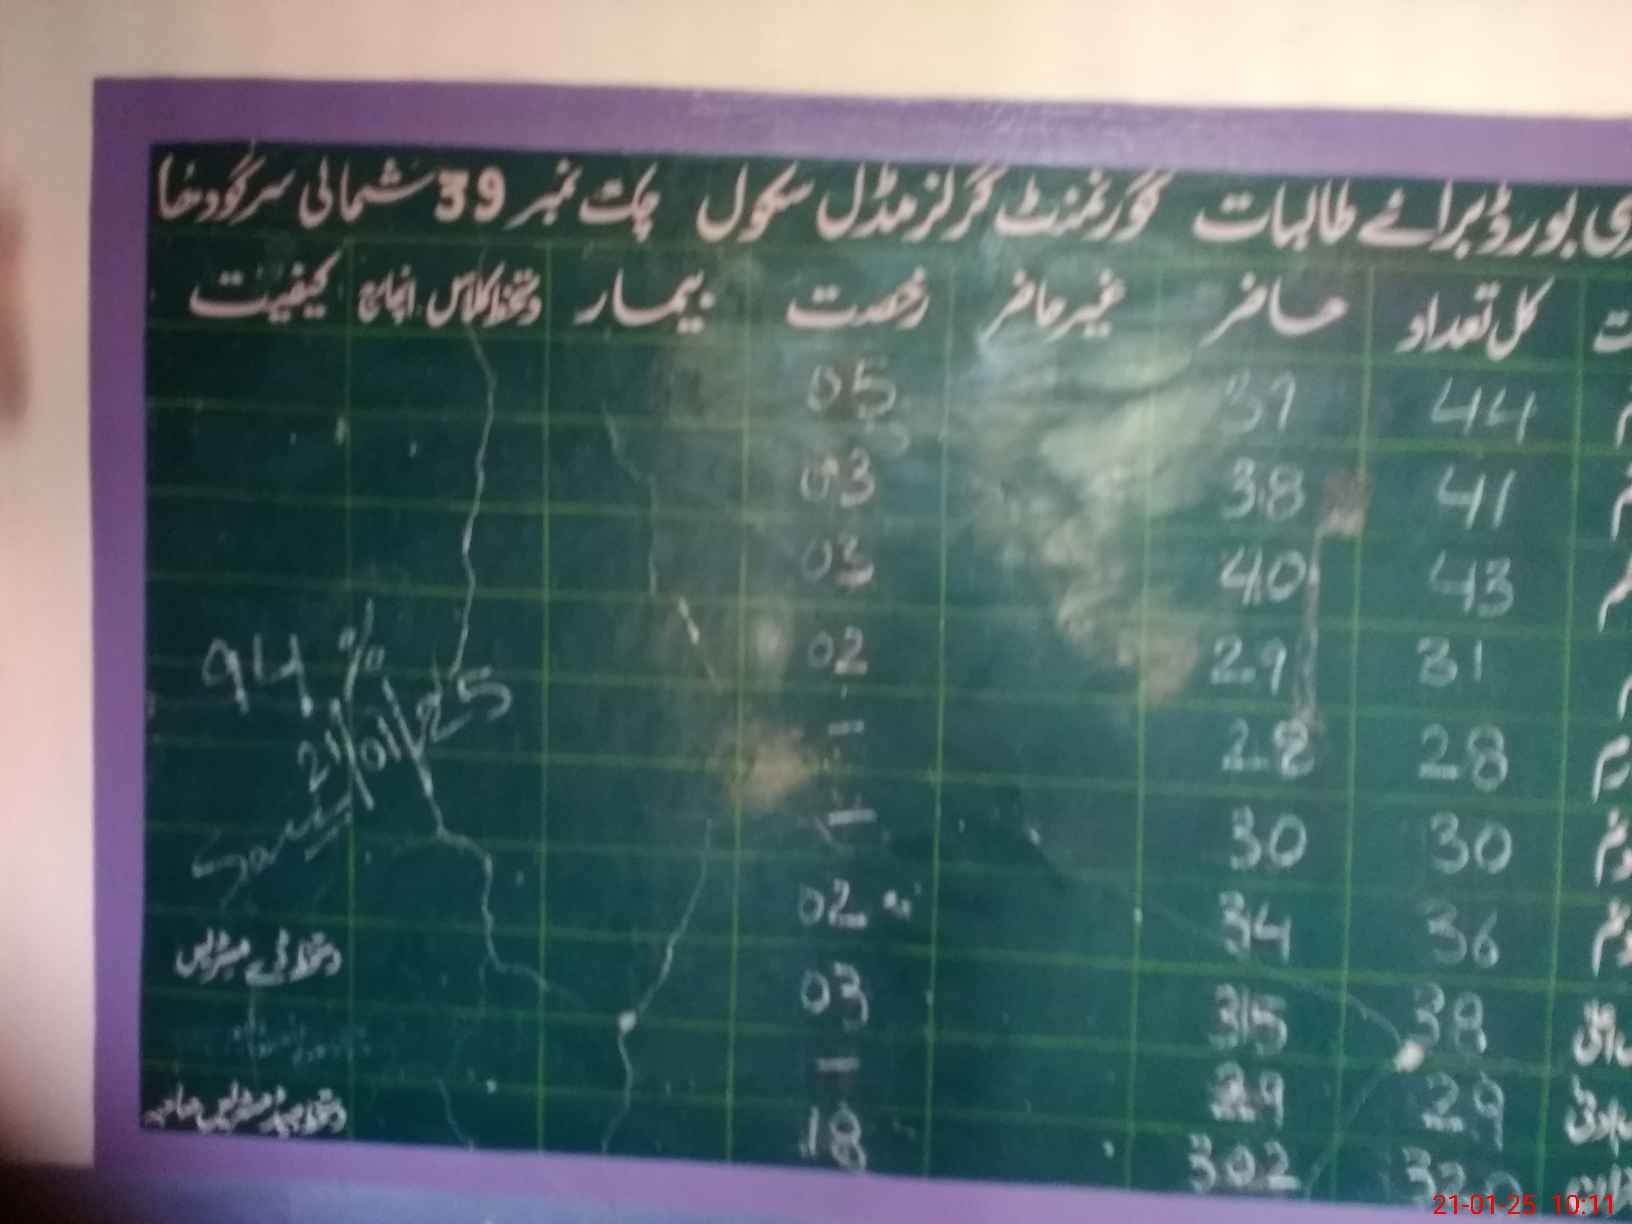 بورڈ برائے طالبات گورنمنٹ گرلز مڈل سکول چک نمبر 39 شمالی سرگودھا
کل تعداد حاضر غیر حاضر رخصت بیمار دستخط کلاس انچارج کیفیت
44 39 05
41 38 03
43 40 03
31 29 02 94%
28 28 — 21/01/25
30 30 —
36 34 02
دستخط ڈپٹی مسٹریس
38 35 03
29 29 —
320 302 18
دستخط ہیڈ مسٹریس صاحبہ
21-01-25 10:11